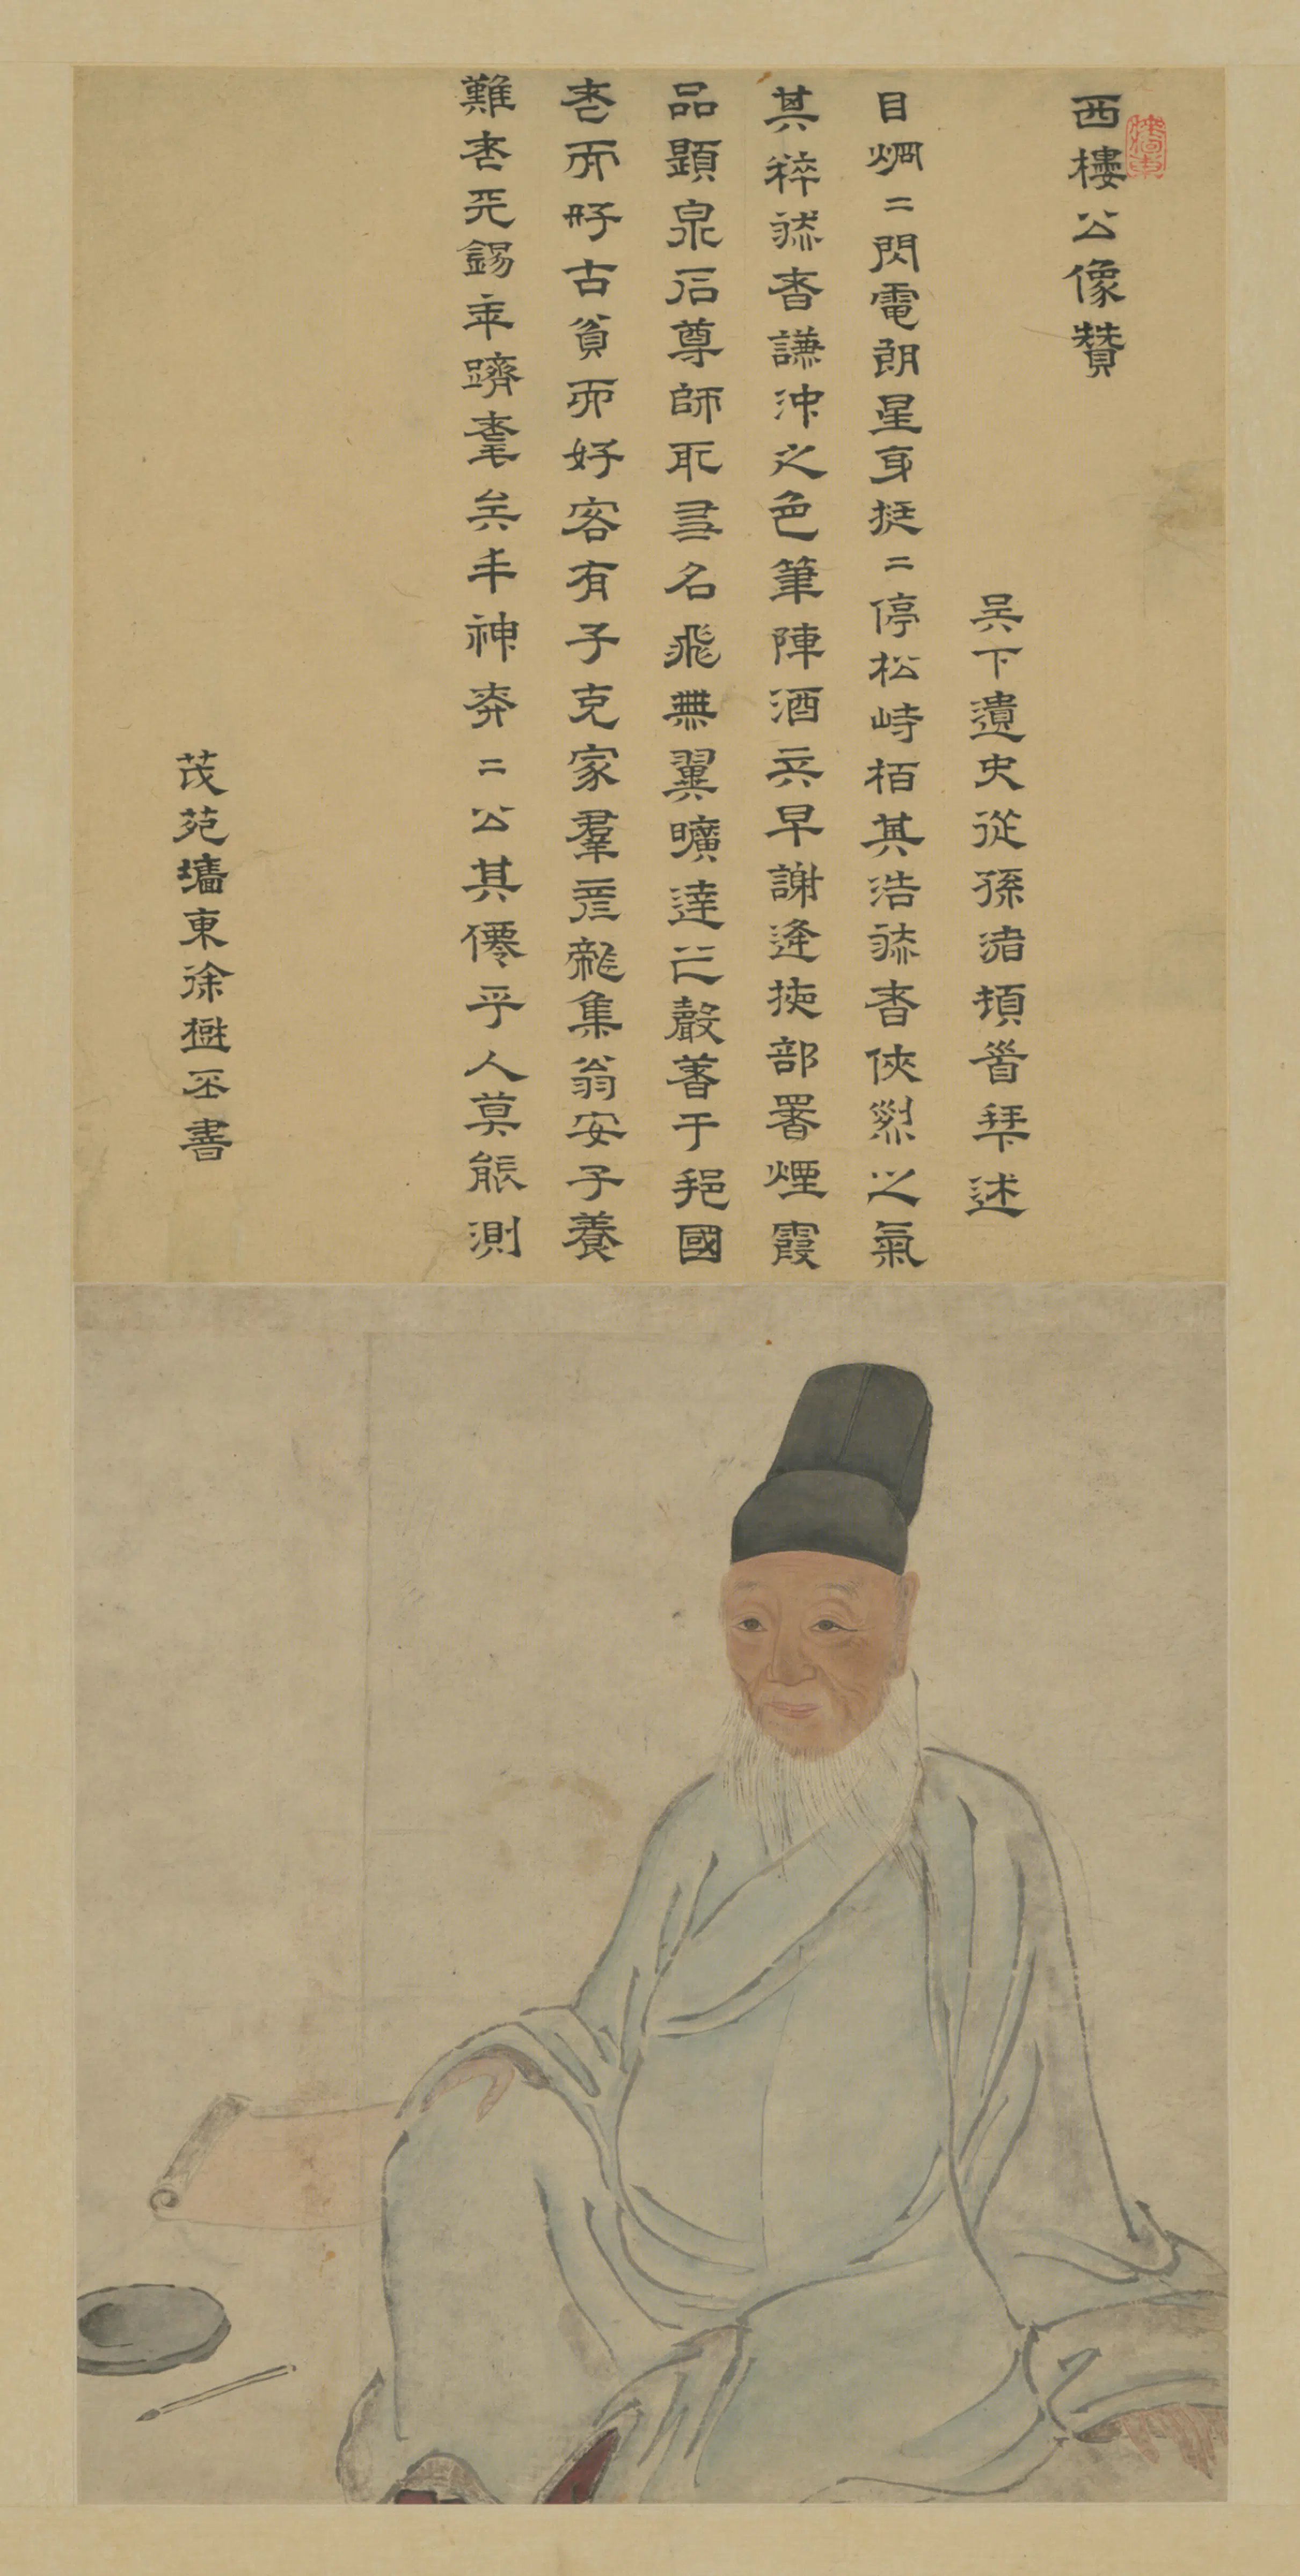 西樓公像贊
墻東
吳下遺史從孫頓首拜述
目烱二閃電朗星身挺二停松峙栢其浩然者俠烈之氣
其粹然者謙沖之色筆陣酒兵早謝逄掖部署煙霞
品題泉石尊師取友名飛無翼曠達聲著于鄉國
老而好古貧而好客有子克家羣彥龍集翁安子養
難老天錫年躋耄矣丰神奕二公其僊乎人莫能測
茂苑墻東徐樹丕書